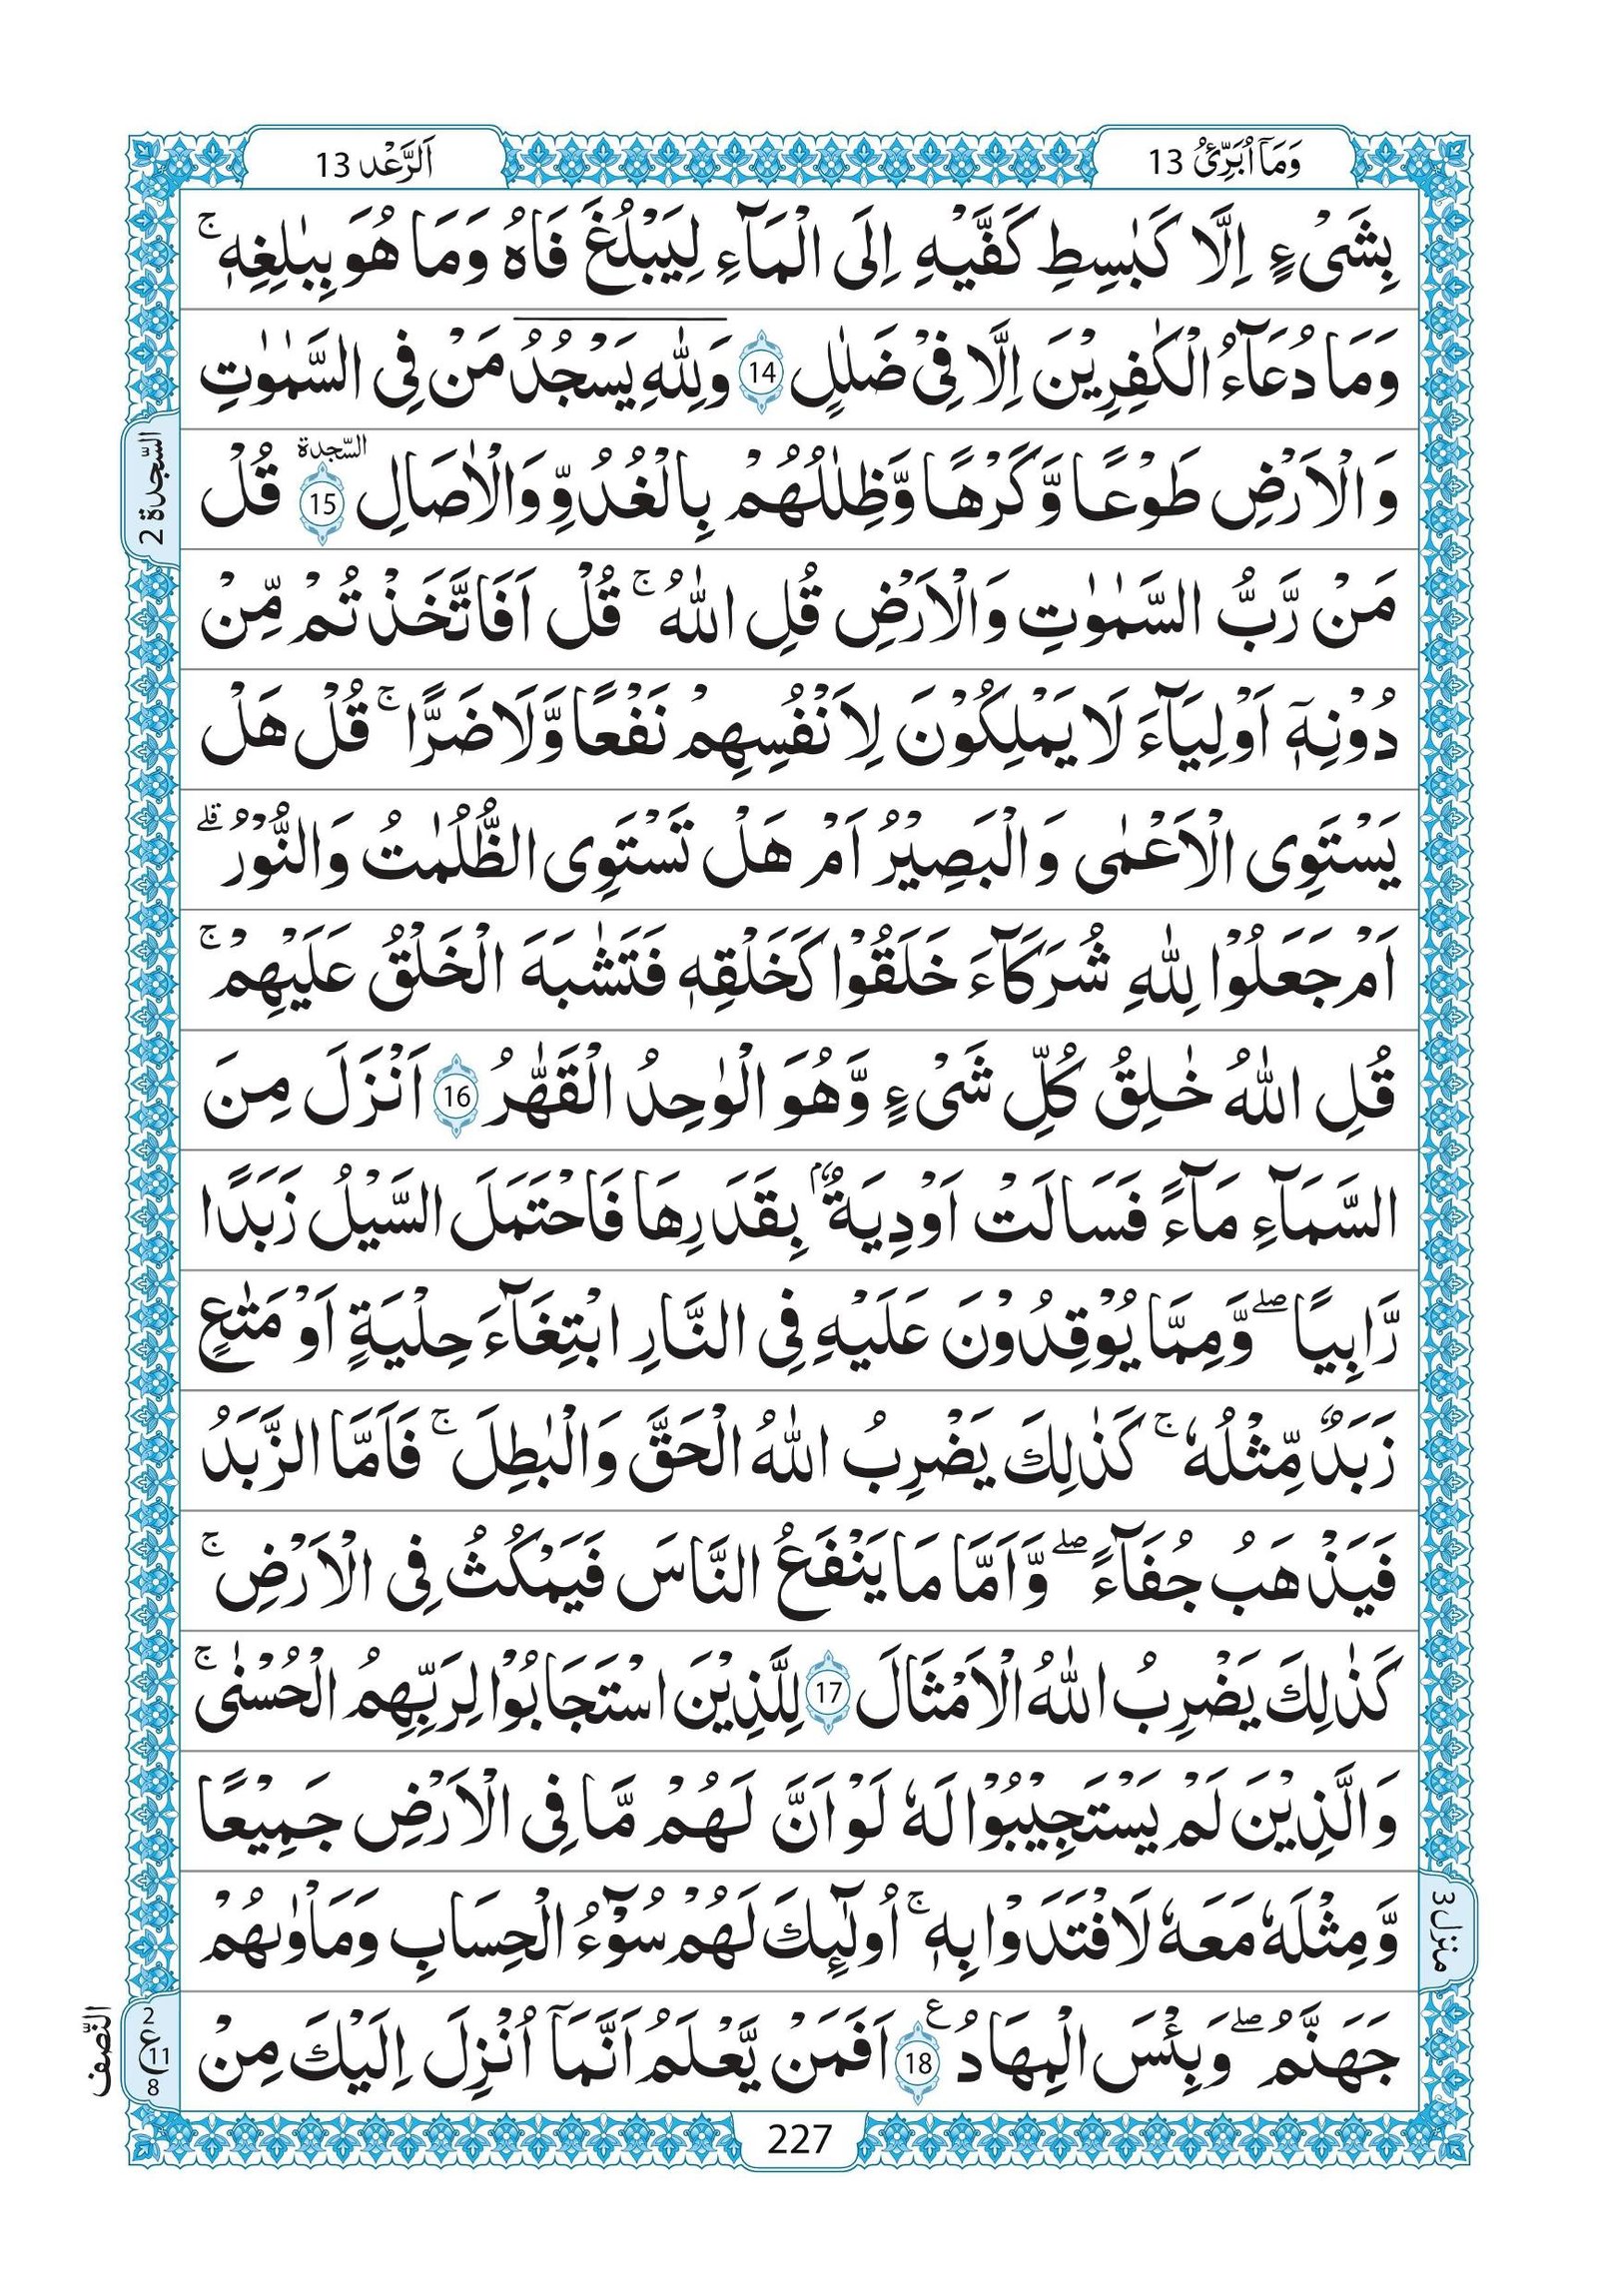 وَمَآ اُبَرِّئُ 13
اَلرَّعْد 13
بِشَیْءٍ اِلَّا كَبٰسِطِ كَفَّیْهِ اِلَی الْمَآءِ لِیَبْلُغَ فَاهُ وَمَا هُوَ بِبٰلِغِهٖ ۚ
وَمَا دُعَآءُ الْكٰفِرِیْنَ اِلَّا فِیْ ضَلٰلٍ 14 وَلِلّٰهِ یَسْجُدُ مَنْ فِی السَّمٰوٰتِ
السجدة 2
وَالْاَرْضِ طَوْعًا وَّكَرْهًا وَّظِلٰلُهُمْ بِالْغُدُوِّ وَالْاٰصَالِ 15 السّجدة قُلْ
مَنْ رَّبُّ السَّمٰوٰتِ وَالْاَرْضِ قُلِ اللّٰهُ ۚ قُلْ اَفَاتَّخَذْتُمْ مِّنْ
دُوْنِهٖۤ اَوْلِیَآءَ لَا یَمْلِكُوْنَ لِاَنْفُسِهِمْ نَفْعًا وَّلَا ضَرًّا ۚ قُلْ هَلْ
یَسْتَوِی الْاَعْمٰی وَالْبَصِیْرُ اَمْ هَلْ تَسْتَوِی الظُّلُمٰتُ وَالنُّوْرُ ۗ
اَمْ جَعَلُوْا لِلّٰهِ شُرَكَآءَ خَلَقُوْا كَخَلْقِهٖ فَتَشٰبَهَ الْخَلْقُ عَلَیْهِمْ ۚ
قُلِ اللّٰهُ خٰلِقُ كُلِّ شَیْءٍ وَّهُوَ الْوٰحِدُ الْقَهّٰرُ 16 اَنْزَلَ مِنَ
السَّمَآءِ مَآءً فَسَالَتْ اَوْدِیَةٌۢ بِقَدَرِهَا فَاحْتَمَلَ السَّیْلُ زَبَدًا
رَّابِیًا ۖ وَّمِمَّا یُوْقِدُوْنَ عَلَیْهِ فِی النَّارِ ابْتِغَآءَ حِلْیَةٍ اَوْ مَتٰعٍ
زَبَدٌ مِّثْلُهٗ ۚ كَذٰلِكَ یَضْرِبُ اللّٰهُ الْحَقَّ وَالْبٰطِلَ ۚ فَاَمَّا الزَّبَدُ
فَیَذْهَبُ جُفَآءً ۖ وَّاَمَّا مَا یَنْفَعُ النَّاسَ فَیَمْكُثُ فِی الْاَرْضِ ۚ
كَذٰلِكَ یَضْرِبُ اللّٰهُ الْاَمْثَالَ 17 لِلَّذِیْنَ اسْتَجَابُوْا لِرَبِّهِمُ الْحُسْنٰی ۚ
وَالَّذِیْنَ لَمْ یَسْتَجِیْبُوْا لَهٗ لَوْ اَنَّ لَهُمْ مَّا فِی الْاَرْضِ جَمِیْعًا
وَّمِثْلَهٗ مَعَهٗ لَافْتَدَوْا بِهٖ ۚ اُولٰٓىِٕكَ لَهُمْ سُوْٓءُ الْحِسَابِ وَمَاْوٰىهُمْ
منزل 3
جَهَنَّمُ ۖ وَبِئْسَ الْمِهَادُ 18 ع اَفَمَنْ یَّعْلَمُ اَنَّمَآ اُنْزِلَ اِلَیْكَ مِنْ
2
ع 11
8
النّصف
227